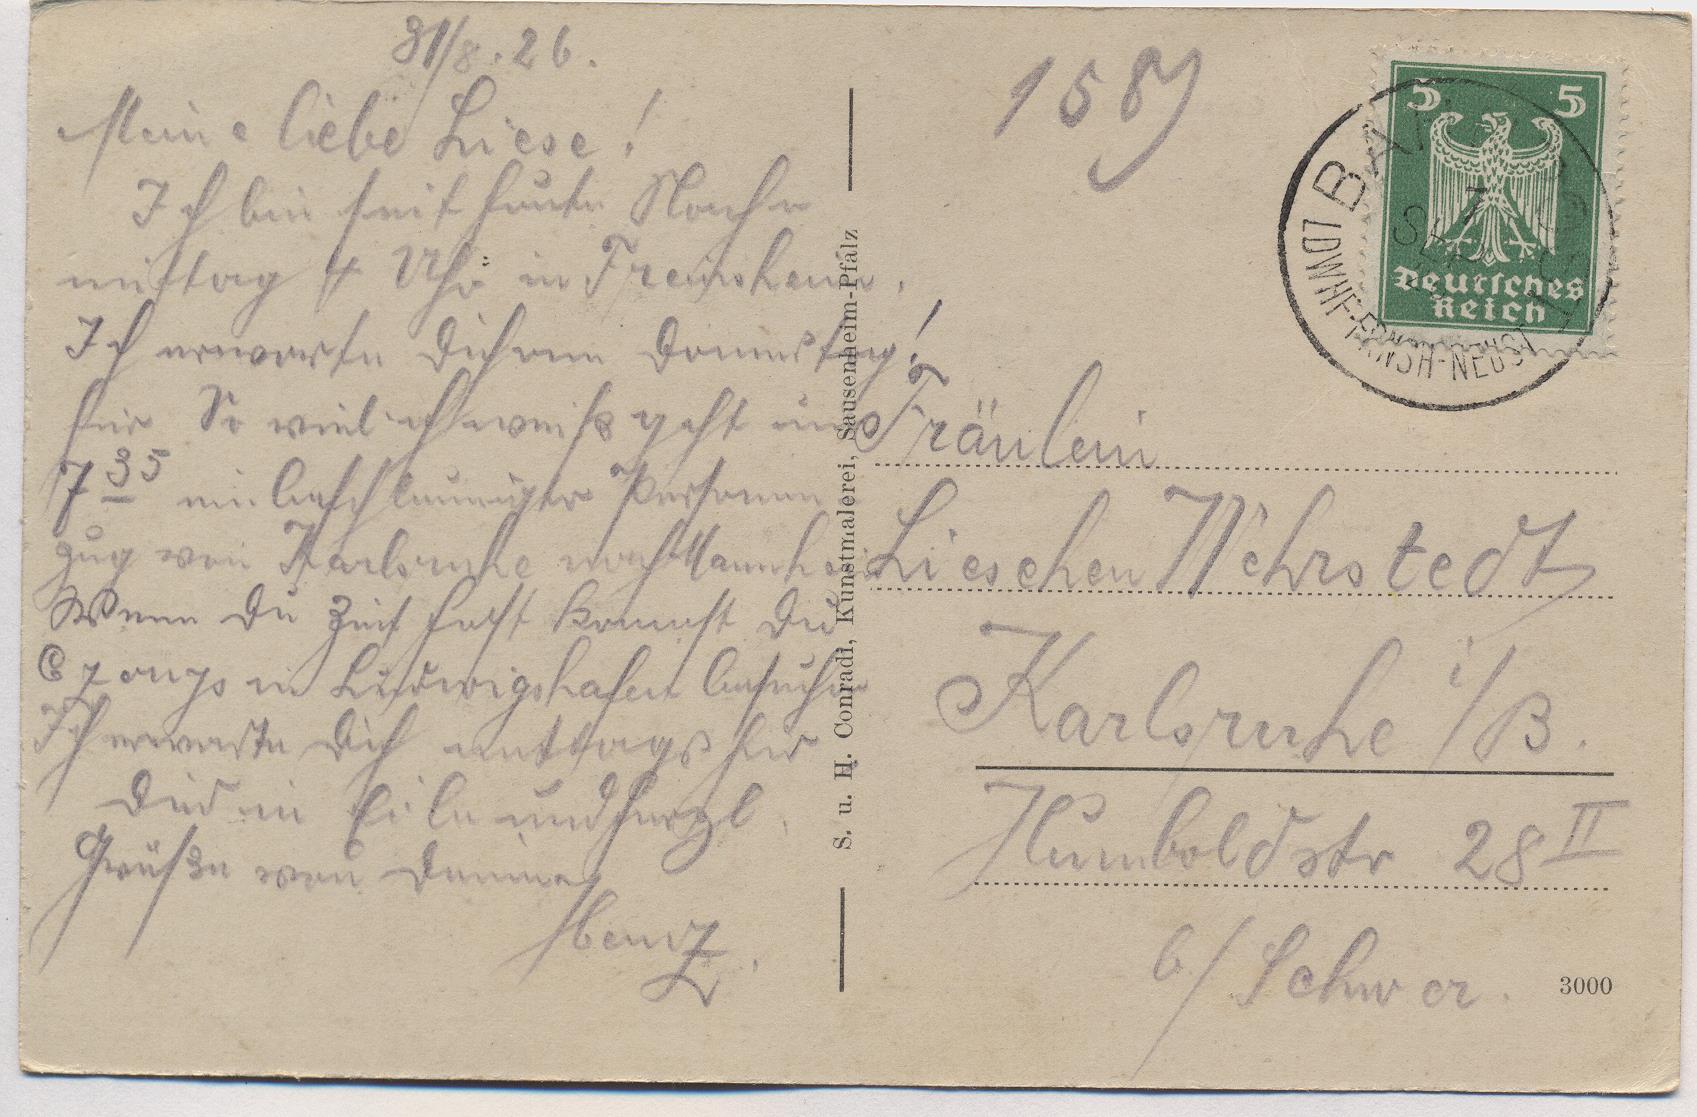 31/8.26.
Meine liebe Liese!
Ich bin seit heute Nach-
mittag 4 Uhr in Freinsheim.
Ich erwarte Dich am Donnerstag!
hier So viel ich weiß geht um
7 35 ein beschleunigter Personen
zug von Karlsruhe nach Mannheim
Wenn Du Zeit hast kannst Du
in Ludwigshafen besuchen
Ich erwarte Dich mittags hier
in Eile und herzl.
Grüße von Deinem
158
5 5
Deutsches
Reich
BAHNPOST
SEP
LDWHF-FRNSH-NEUST
Fräulein
Lieschen Wehrstedt
Karlsruhe i/B.
Humboldstr 28 II
b/ Schwer.
S. u. H. Conradi, Kunstmalerei, Sausenheim-Pfalz
3000